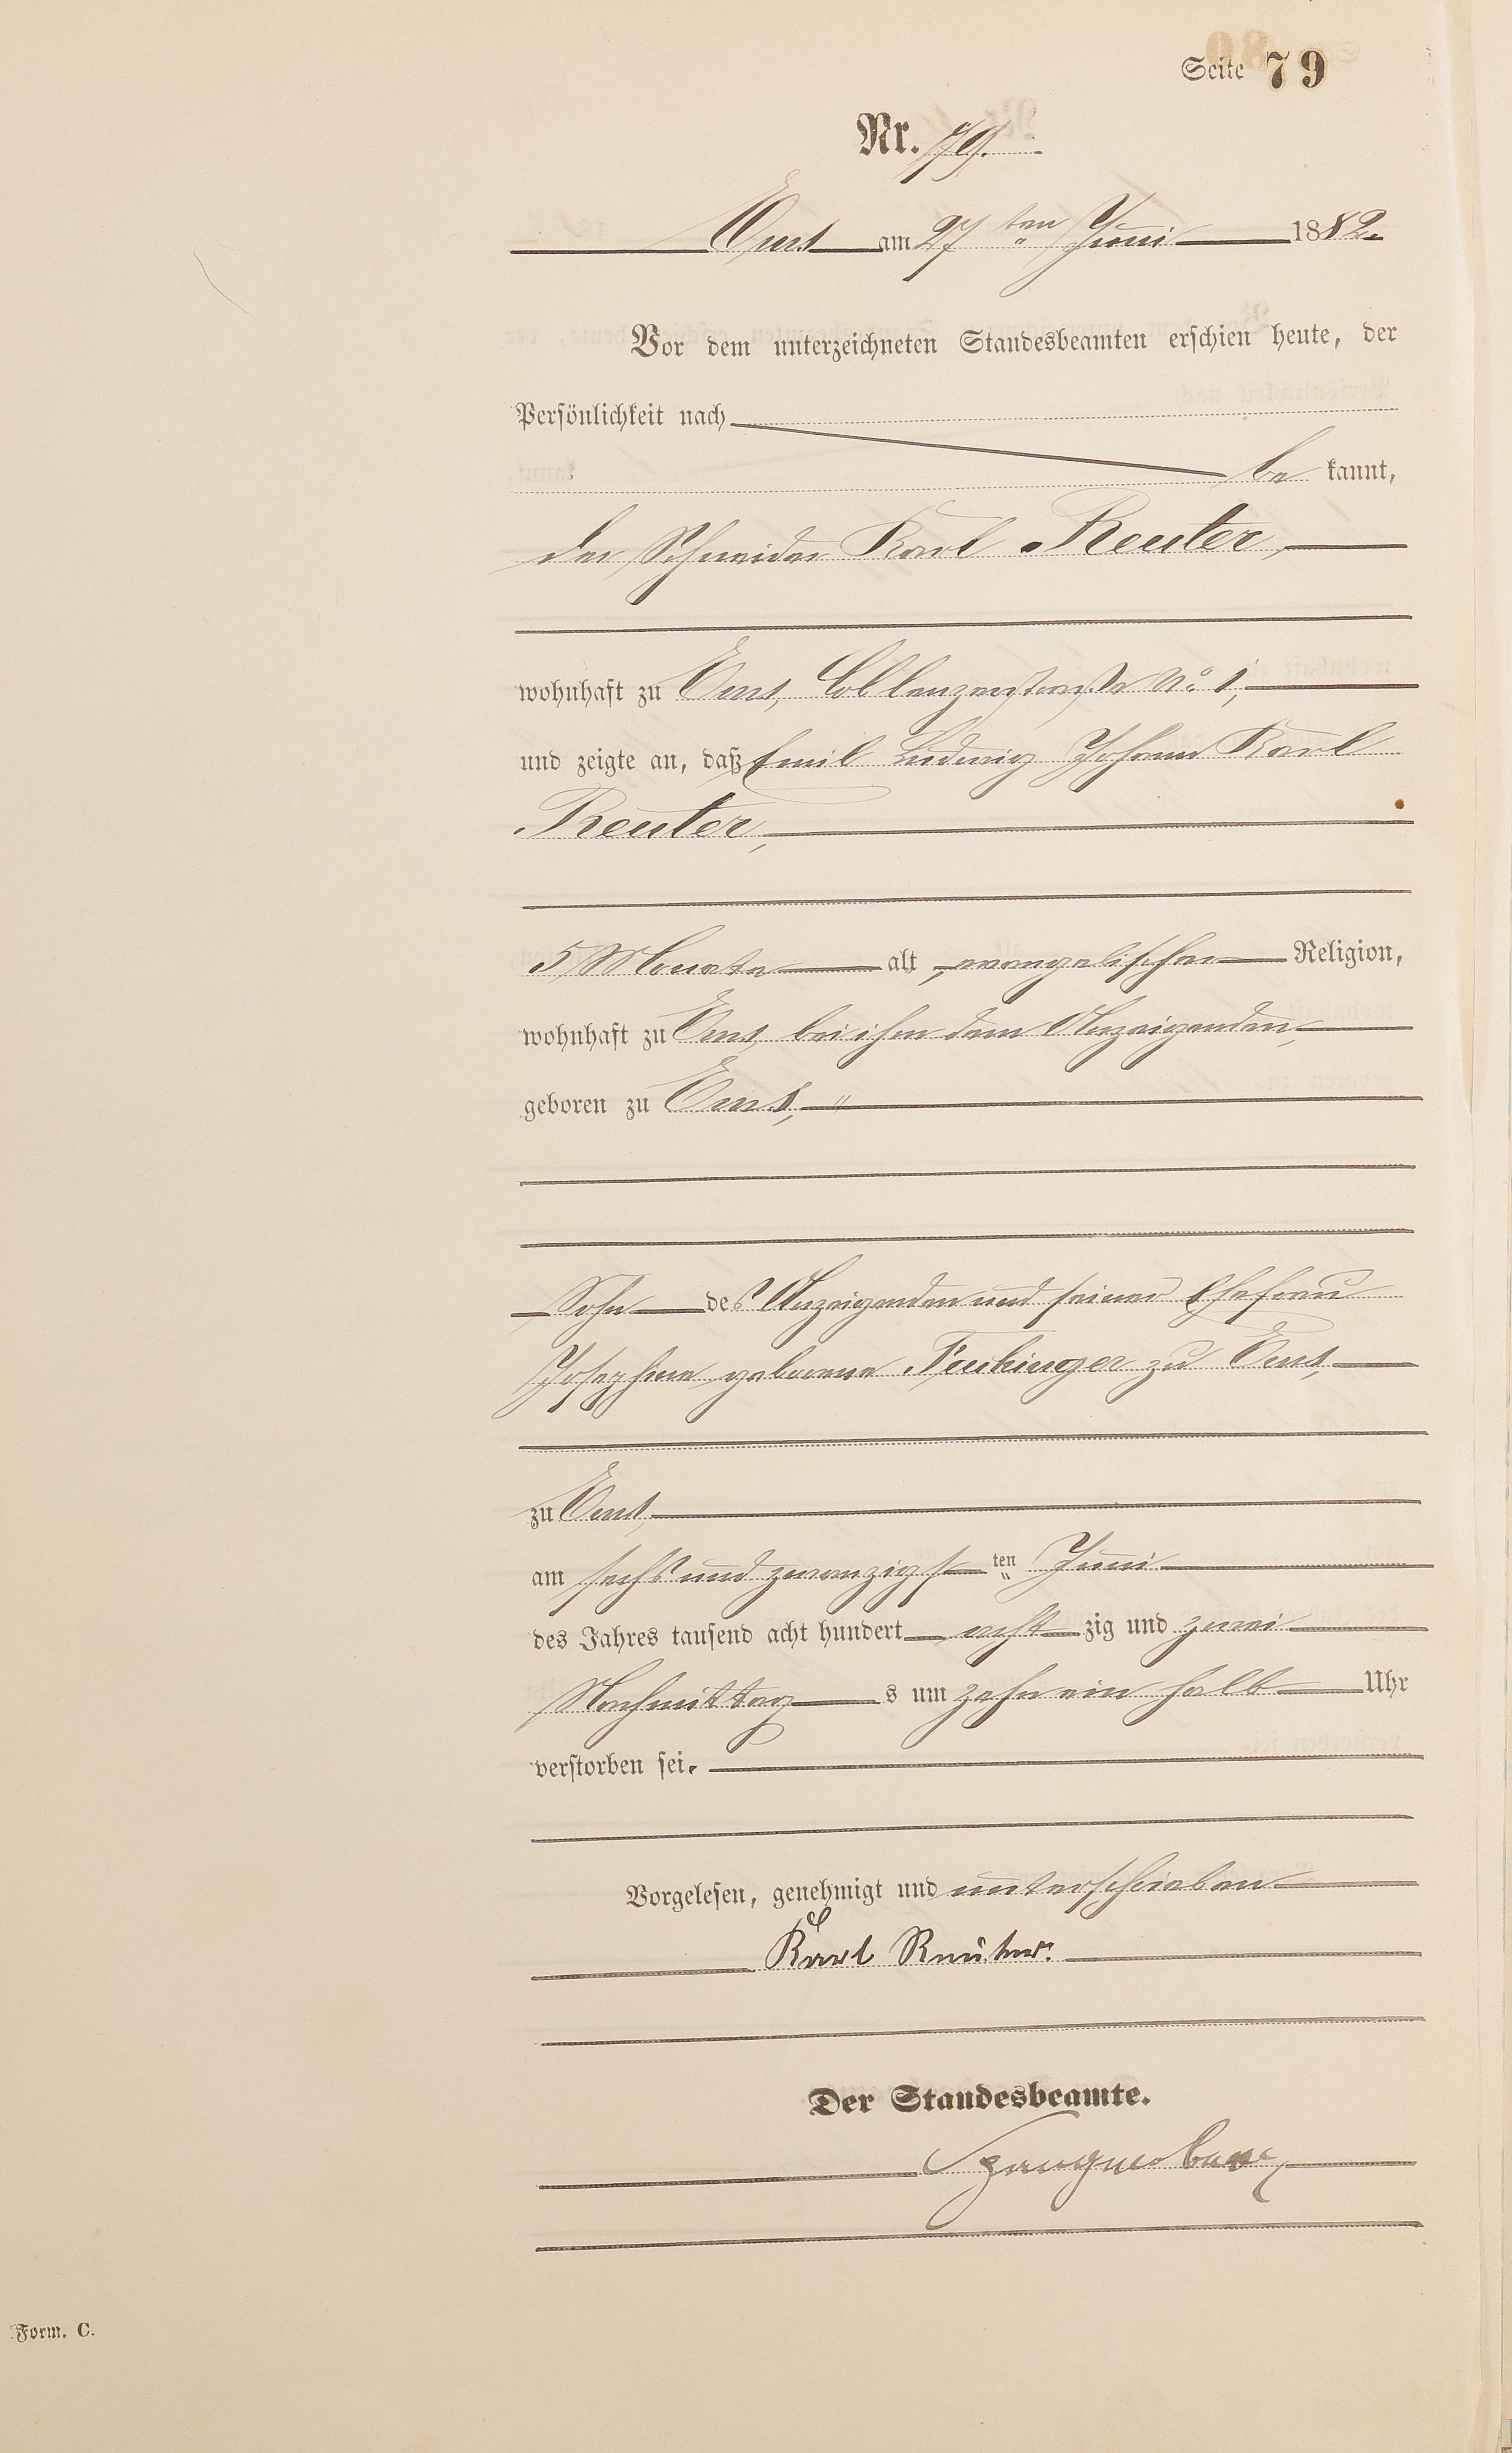 Seite 79
Nr. 79.
Ems am 27 ten Juni 1882.
Vor dem unterzeichneten Standesbeamten erschien heute, der
Persönlichkeit nach
be kannt,
der Schneider Karl Reuter,
wohnhaft zu Ems, Coblenzerstraße No 1,
und zeigte an, daß Emil Ludwig Johann Karl
Reuter,
5 Monate alt, evangelischer Religion,
wohnhaft zu Ems, bei ihm dem Anzeigenden,
geboren zu Ems,
Sohn des Anzeigenden und seiner Ehefrau
Josephine geborene zu Ems,
zu Ems,
am sechs und zwanzigsten Juni
des Jahres tausend acht hundert achtzig und zwei
Nachmittags um zehn ein halb Uhr
verstorben sei.
Vorgelesen, genehmigt und unterschrieben
Karl Reuter.
Der Standesbeamte.
Form. C.